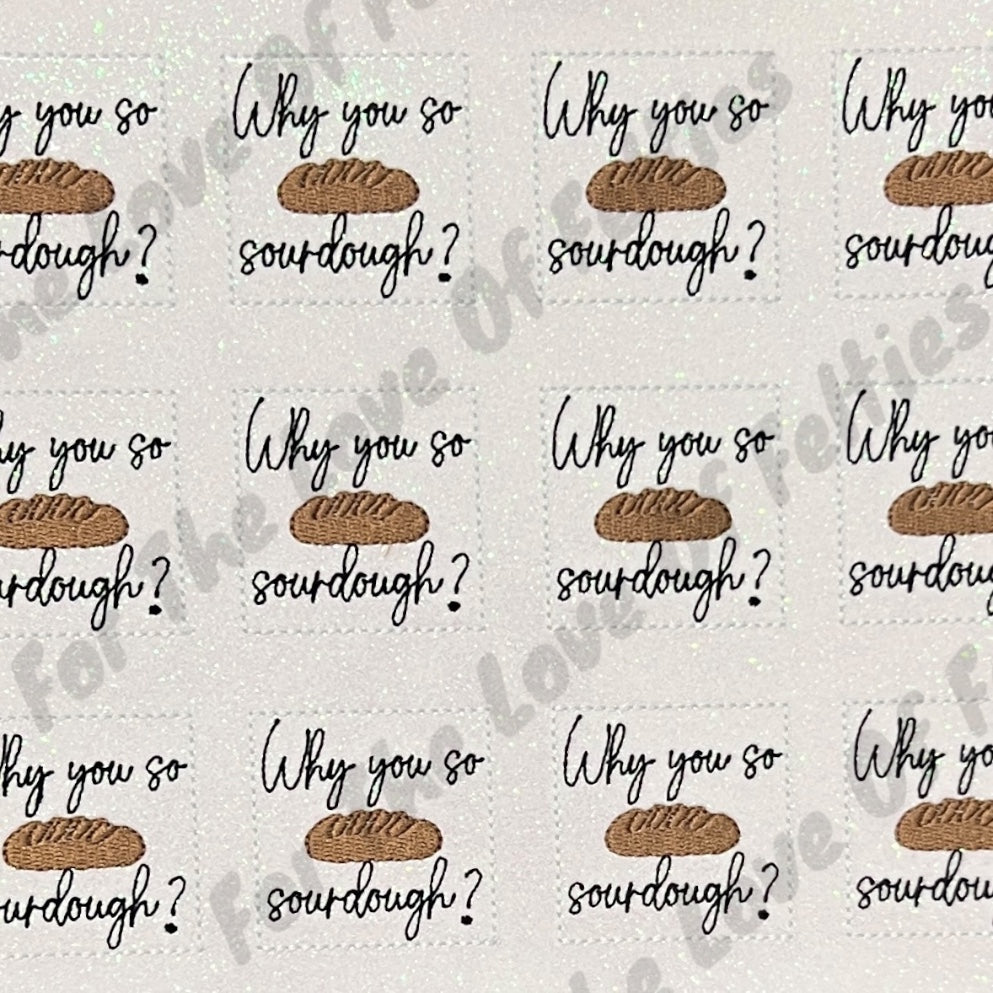 y you so Why you so Why you so Why you
rdough? sourdough? sourdough? sourdoug
hy you so Why you so Why you so Why yo
urdough? sourdough? sourdough? sourdoug
hy you so Why you so Why you so Why yo
urdough? sourdough? sourdough? sourdou
he Love Of
For The Love Of Felties
For The Love Of Felties
he Love Of F